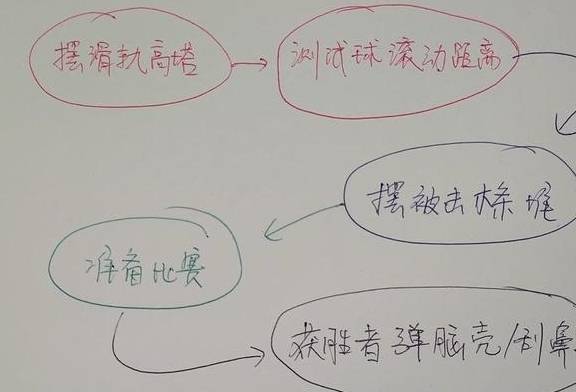 摆滑轨高塔
测试球滚动距离
摆被击木条堆
准备比赛
获胜者弹脑壳/刮鼻